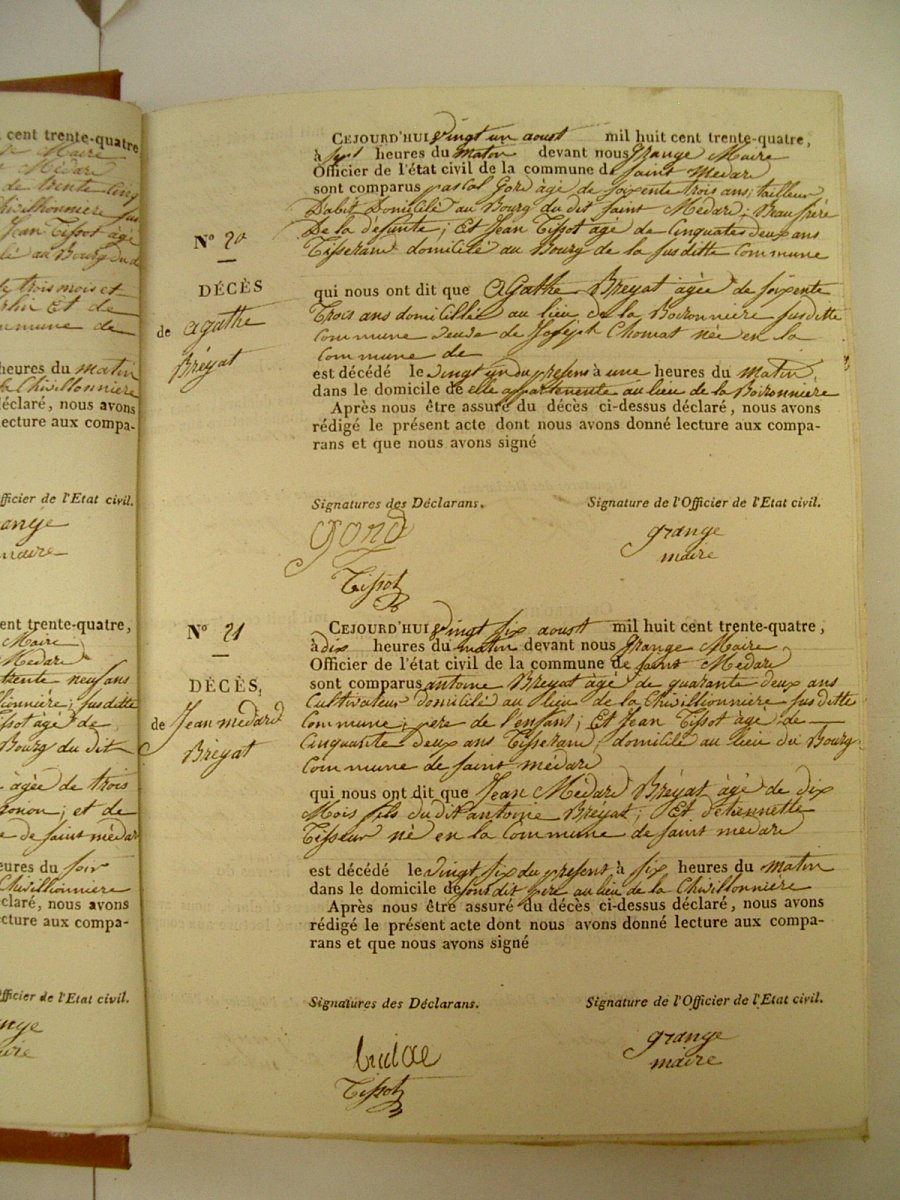 cent trente-quatre
Maire
Médard
de trente cinq
Chivillonniere sus
Jean Tissot agé
au Bourg du d
trois mois et
et de
commune de
heures du matin
la Chivillonniere
déclaré, nous avons
lecture aux compa-
fficier de l'Etat civil.
ange
maire
ent trente-quatre,
Maire
Medard
trente neuf ans
lionniere; susditte
ssot agé de
Bourg du dit
agée de trois
; et de
de saint médar
eures du soir
Chivillionniere
claré, nous avons
cture aux compa-
fficier de l'Etat civil.
nge
ire
CEJOURD'HUI vingt un aoust mil huit cent trente-quatre,
à sept heures du maton devant nous Grange Maire
Officier de l'état civil de la commune de saint Médard
sont comparus pascal Gord àgé de soixente trois ans; tailleur
D'abit Domicilié au Bourg du dit saint Médard; Beau frére
De la defunte; Et Jean Tissot agé de cinquates deux ans
Tisseran domicilié au Bourg de la susditte commune
N° 20
DÉCÈS
de agathe
Bréyat
qui nous ont dit que Agathe Breyat agée de soixente
Trois ans domicilliée au lieu de la Boironniere susditte
commune veuve de Joseph Chomat née en la
Commune de
est décédé le vingt un du present à une heures du matin
dans le domicile de elle appartenente au lieu de la Boironniére
Après nous être assuré du décès ci-dessus déclaré, nous avons
rédigé le présent acte dont nous avons donné lecture aux compa-
rans et que nous avons signé
Signatures des Déclarans. Signature de l'Officier de l'Etat civil.
gord grange
Tissot maire
N° 21
CEJOURD'HUI vingt six aoust mil huit cent trente-quatre,
à dix heures du matin devant nous Grange Maire
Officier de l'état civil de la commune de saint Médard
DÉCÈS,
de Jean medard
Bréyat
sont comparus antoine Breyat àgé de quarante deux ans
Cultivateur domicilié au lieu de la Chivillionniere susditte
Commune; pere de l'enfant; Et Jean Tissot agé de
Cinquante deux ans Tisseran; domicilié au lieu du Bourg
Commune de saint médard
qui nous ont dit que Jean Médard Bréyat àgé de dix
Mois fils du dit antoine Bréyat; Et d'etiennette
Tisseur né en la Commune de saint médard
est décédé le vingt six du present à six heures du matin
dans le domicile de sont dit pere au lieu de la Chivillonniere
Après nous être assuré du décès ci-dessus déclaré, nous avons
rédigé le présent acte dont nous avons donné lecture aux compa-
rans et que nous avons signé
Signatures des Déclarans. Signature de l'Officier de l'Etat civil.
grange
Tissot maire